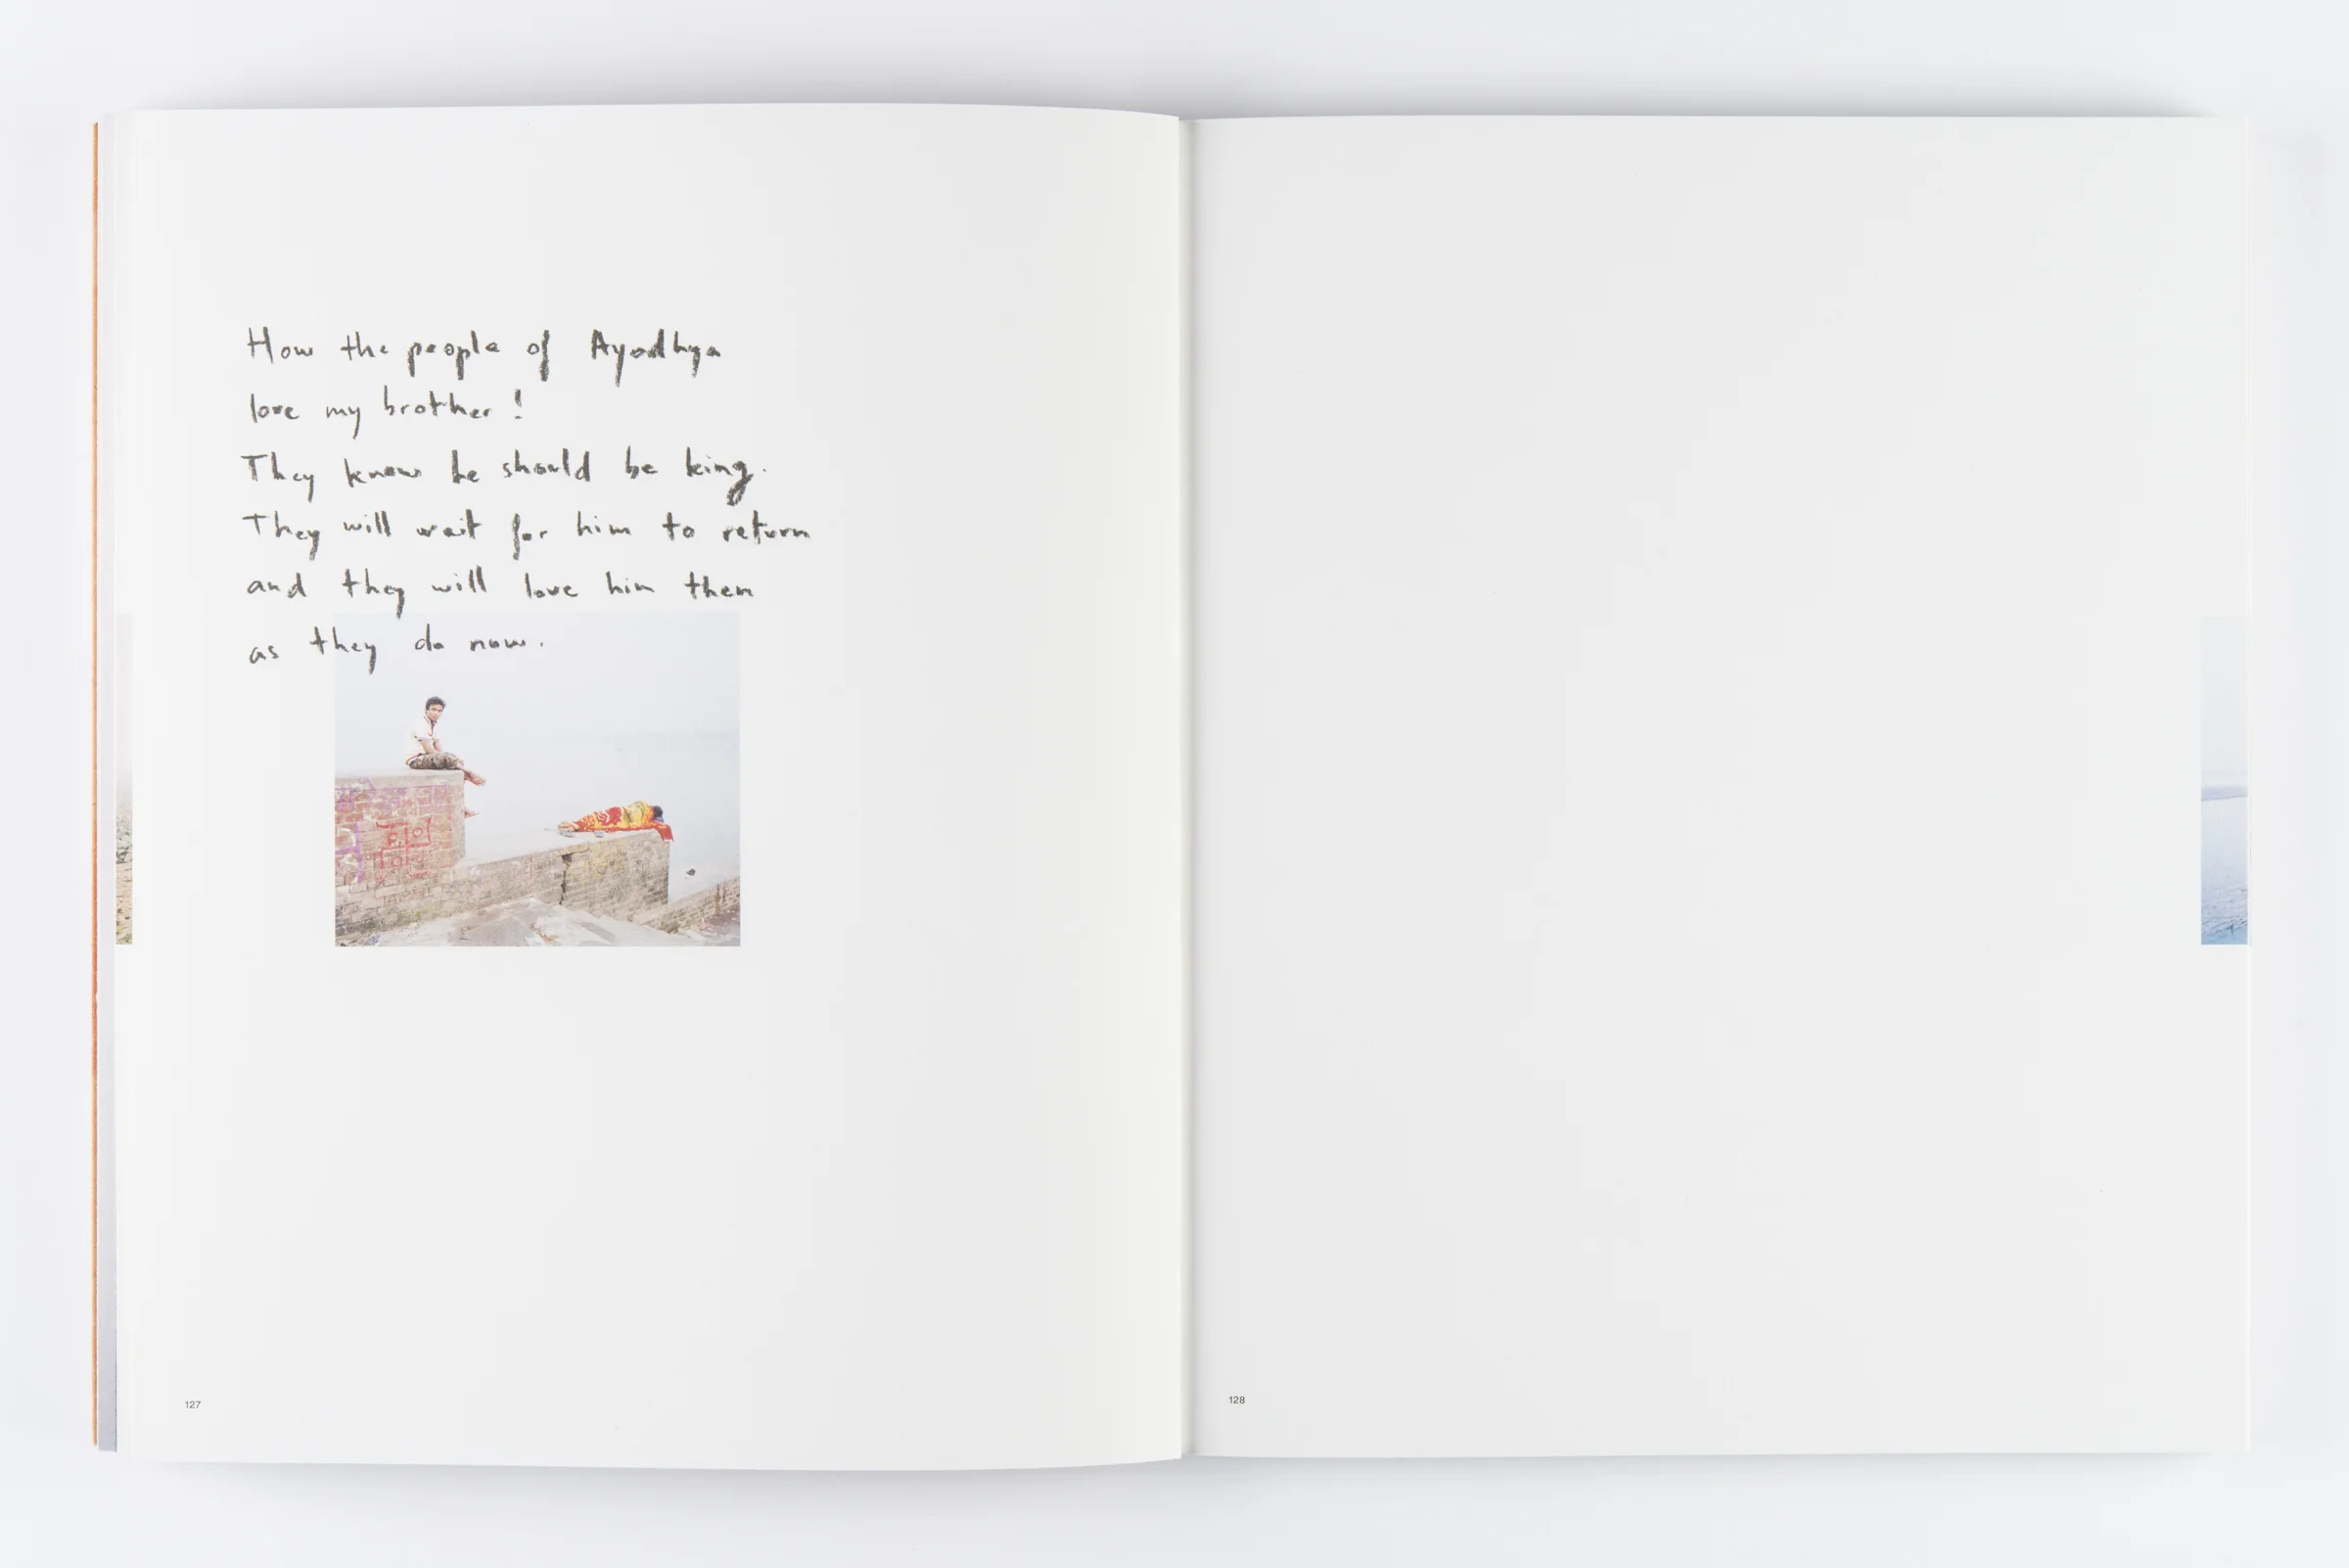 How the people of Ayodhya
love my brother!
They know he should be king.
They will wait for him to return
and they will love him then
as they do now.
127
128